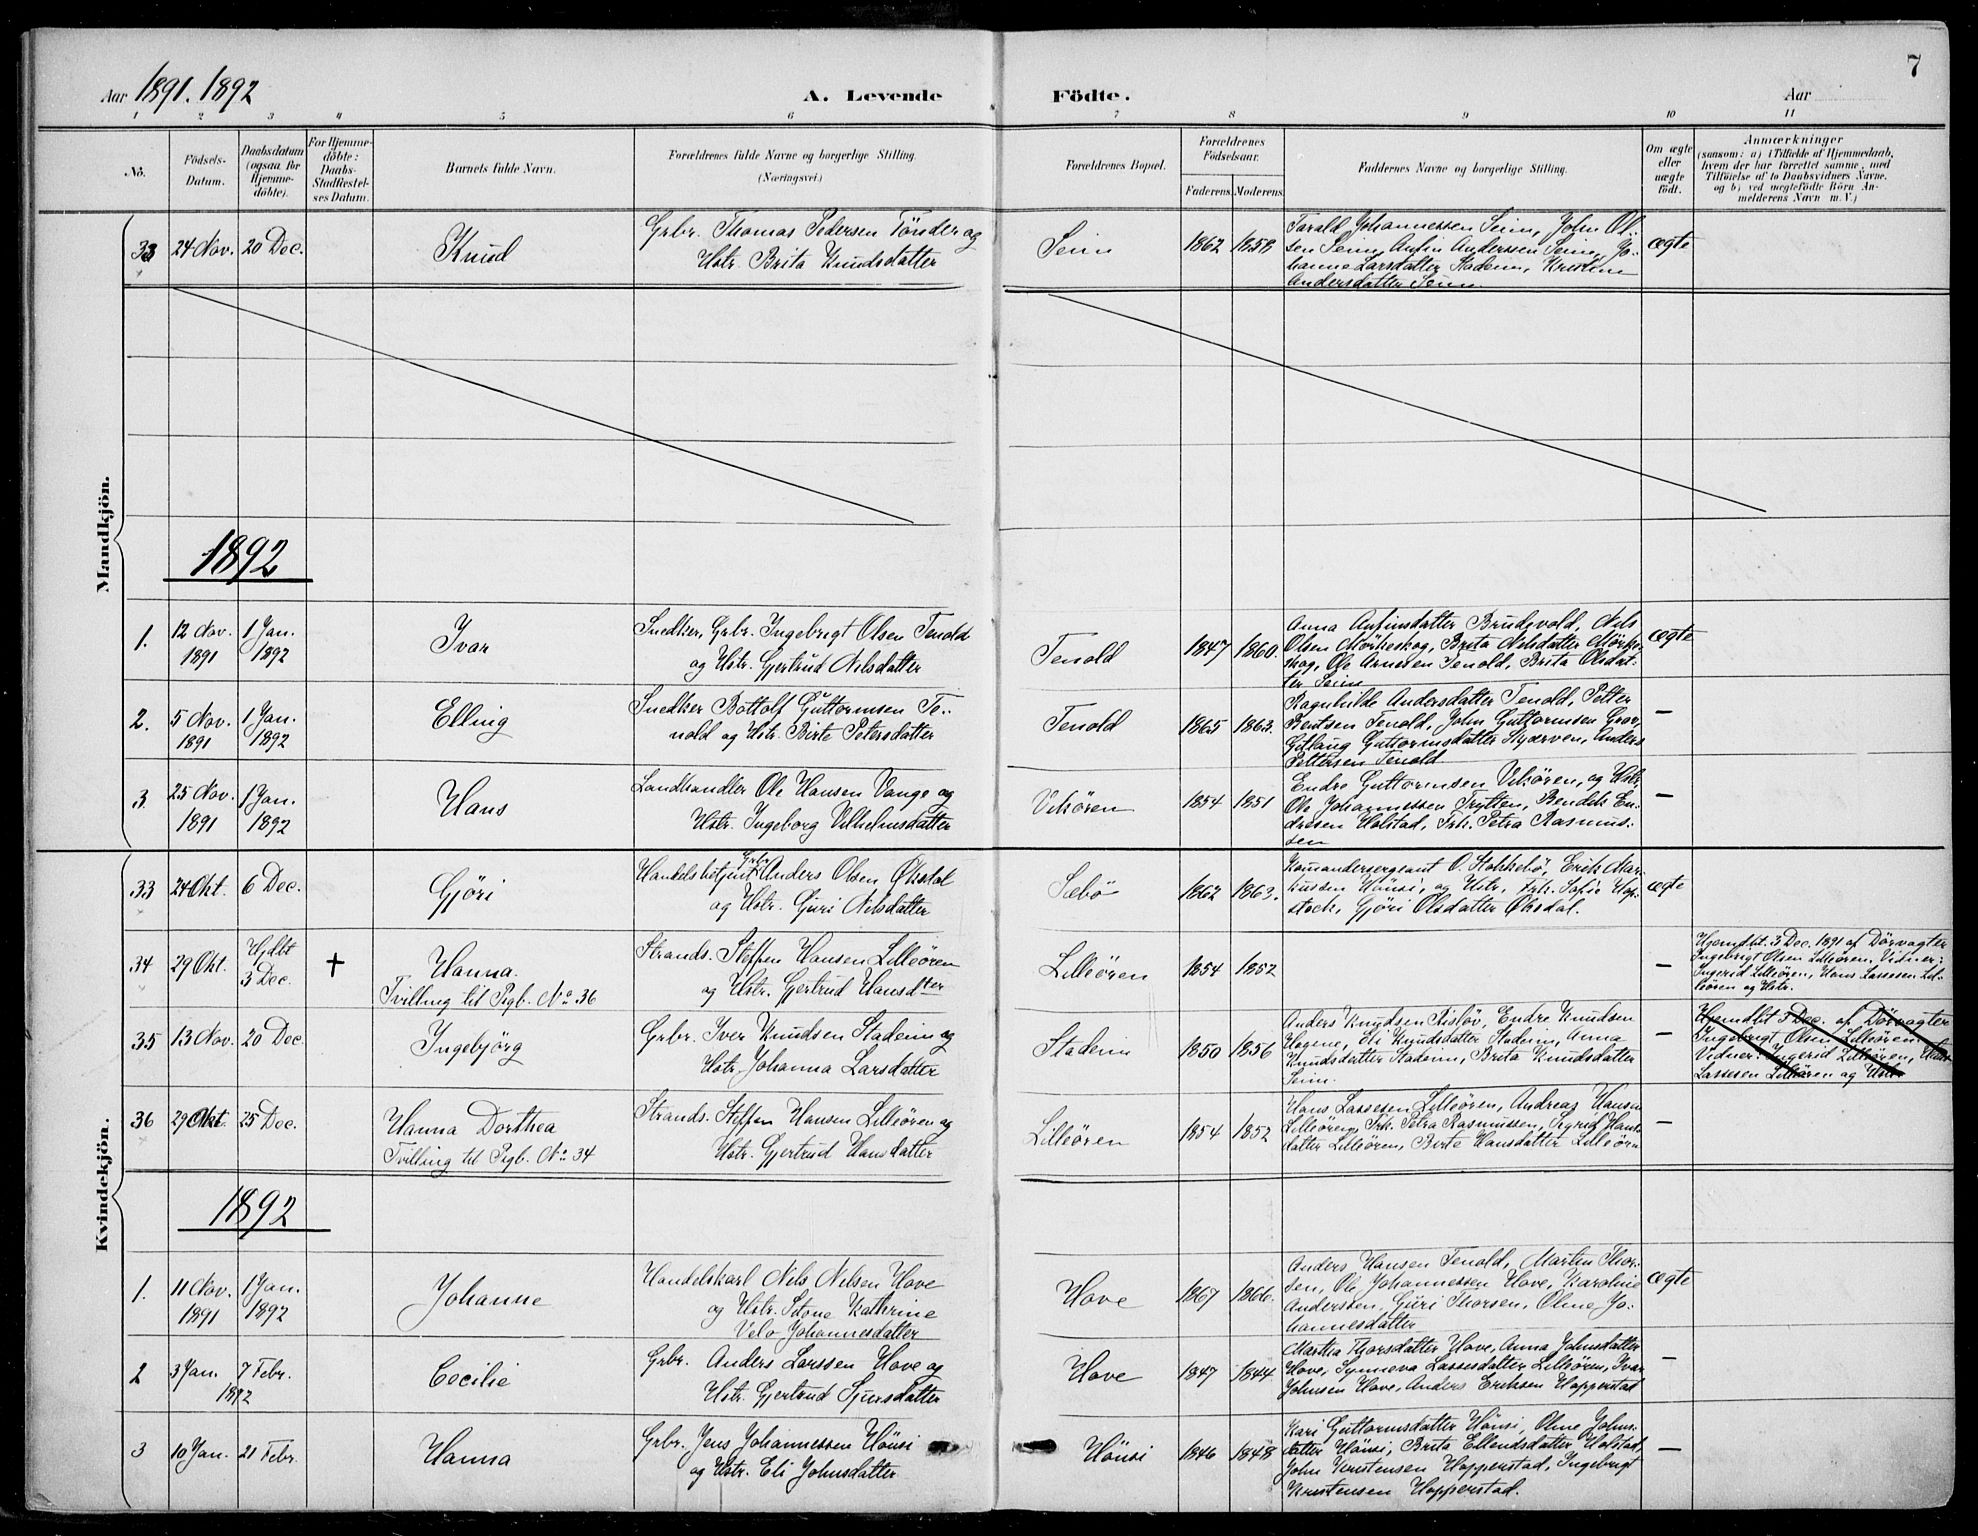 7
Aar 1891. 1892
A. Levende Födte.
Aar
1 2 3 4 5 6 7 8 9 10 11
No.
Födsels-Datum.
Daabsdatum (ogsaa for Hjemme-döbte).
For Hjemme-döbte: Daabs-Stadfæstel-ses Datum.
Barnets fulde Navn.
Forældrenes fulde Navne og borgerlige Stilling.
(Næringsvei.)
Forældrenes Bopæl.
Forældrenes Födselsaar.
Faderens. Moderens.
Faddernes Navne og borgerlige Stilling.
Om ægte eller uægte födt.
Anmærkninger
(saasom: a) i Tilfælde af Hjemmedaab,
hvem der har forrettet samme, med
Tilföielse af to Daabsvidners Navne,
og b) ved uægtefödte Börn An-
melderens Navn m. V.)
Mandkjön.
33 24 Nov. 20 Dec. Knud
Grbr. Thomas Pedersen Tönder og
Hstr. Brita Knudsdatter
Seim 1862 1858
Tarald Johannessen Seim, John Ol-
sen Seim, Anfin Anderssen Seim, Jo-
hanne Larsdatter Stadem, Kristine
Andersdatter Seim
ægte
1892
1. 12 Nov. 1891 1 Jan. 1892 Ivar
Snedker, Grbr. Ingebrigt Olsen Tenold
og Hstr. Gjertrud Nilsdatter
Tenold 1847 1860.
Anna Anfinsdatter Brudvold, Nils
Olsen Mörkeskog, Brita Nilsdatter Mörke-
skog, Ole Arnesen Tenold, Brita Olsdat-
ter Seim
ægte
2. 5 Nov. 1891 1 Jan. 1892 Elling
Snedker Bottolf Guttormsen Te-
nold og Hstr. Birte Petersdatter
Tenold 1865 1863.
Ragnhilde Andersdatter Tenold, Petter
Bentsen Tenold, John Guttormsen Grov,
Gitlaug Guttormsdatter Hyærven, Anders
Pettersen Tenold
—
3 25 Nov. 1891 1 Jan. 1892 Hans
Landhandler Ole Hansen Vange og
Hstr. Ingeborg Vilhelmsdatter
Vikören 1854 1851
Endre Guttormsen Vikören, og Hstr.
Ole Johannessen Trytten, Bendik En-
dresen Holstad, Frk. Petra Rasmus-
sen
—
Kvindekjön.
33 24 Okt. 6 Dec. Gjöri
Handelsbetjent Grbr. Anders Olsen Öksdal
og Hstr. Guri Nilsdatter
Sæbö 1862 1863.
Komandersergeant O. Stokkebö, Erik Mar-
kussen Hönsi, og Hstr, Frk. Sofie Hop-
stock, Gjöri Olsdatter Öksdal.
ægte
34 29 Okt. Hjdbt 3 Dec. + Hanna.
Tvilling til Pigb. No 36
Strands. Steffen Hansen Lilleören
og Hstr. Gjertrud Hansdter
Lilleören 1854 1852
—
Hjemdbt. 3 Dec. 1891 af Dörvagter
Ingebrigt Olsen Lilleören. Vidner:
Ingerid Lilleören, Hans Lassesen Lil-
leören og Hstr.
35 13 Nov. 20 Dec. Ingebjörg
Grbr. Iver Knudsen Stadem og
Hstr. Johanna Larsdatter
Stadem 1850 1856
Anders Knudsen Sislöv, Endre Knudsen
Hagene, Eli Knudsdatter Stadem, Anna
Knudsdatter Stadem, Brita Knudsdatter
Seim.
—
Hjemdbt 3 Dec. af Dörvagter
Ingebrigt Olsen Lilleören
Vidner: Ingerid Lilleören, Hans
Lassesen Lilleören og Hstr
36 29 Okt. 25 Dec. Hanna Dorthea
Tvilling til Pigb. No 34
Strands. Steffen Hansen Lilleören og
Hstr. Gjertrud Hansdatter
Lilleören 1854 1852
Hans Lassesen Lilleören, Andreas Hansen
Lilleören, Frk. Petra Rasmussen, Sigrid Hans-
datter Lilleören, Birte Hansdatter Lilleören
—
1892
1. 11 Nov. 1891 1 Jan. 1892 Johanne
Handelskarl Nils Nilsen Hove
og Hstr. Katherine
Johannesdatter
Hove 1867 1866.
Anders Hansen Tenold, Martin Thor-
sen, Ole Johannessen Hove, Karoline
Anderssen, Guri Thorsen, Oline Jo-
hannesdatter
ægte
2 3 Jan. 7 Febr. 1892 Cecilie
Grbr. Anders Larssen Hove og
Hstr. Gjertrud Sjursdatter
Hove 1847 1844
Martha Thorsdatter Hove, Anna Johnsdatter
Hove, Synneva Lassesdatter Lilleören, Ivar
Johnsen Hove, Anders Eriksen Hopperstad
—
3 10 Jan. 21 Febr. Hanna
Grbr. Jens Johannessen Hönsi
og Hstr. Eli Johnsdatter
Hönsi 1846 1848
Kari Guttormsdatter Hönsi, Oline Johns-
datter Hönsi, Brita Ellendsdatter Holstad,
John Kerstensen Hopperstad, Ingebrigt
Kristensen Hopperstad.
—